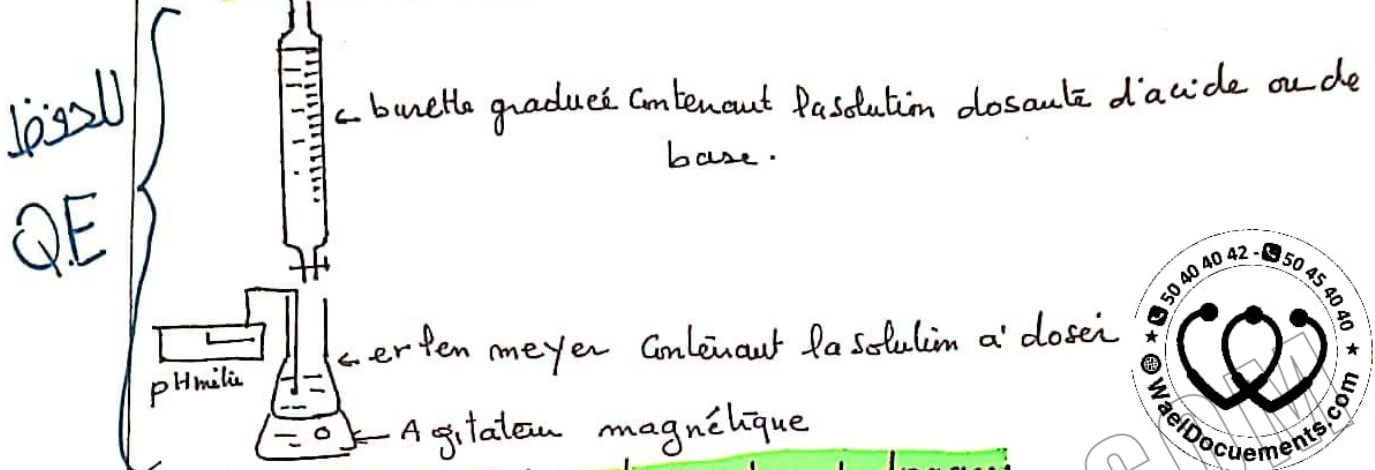 للحفظ
Q.E
burette graduée contenant la solution dosante d'acide ou de
base.
pHmètre
erlen meyer contenant la solution à doser
Agitateur magnétique
50 40 40 42 - 50 45 40 40
WaelDocuements.com